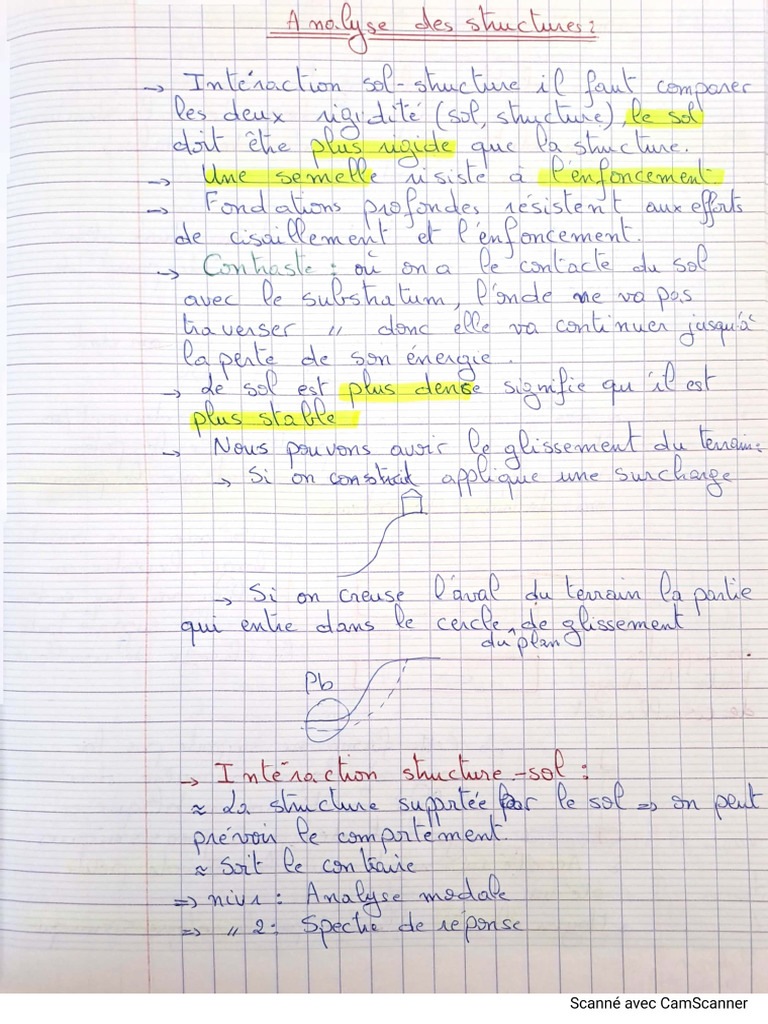 Analyse des structures :
→ Intéraction sol-structure il faut comparer
les deux rigidité (sol, structure), le sol
doit être plus rigide que la structure.
→ Une semelle résiste à l'enfoncement.
→ Fondations profondes résistent aux efforts
de cisaillement et l'enfoncement.
→ Contraste : où on a le contacte du sol
avec le substratum, l'onde ne va pas
traverser " donc elle va continuer jusqu'à
la perte de son énergie.
→ Le sol est plus dense signifie qu'il est
plus stable
→ Nous pouvons avoir le glissement du terrain :
→ Si on construit applique une surcharge
→ Si on creuse l'aval du terrain la partie
qui entre dans le cercle ^ de glissement
du plan
Pb
→ Intéraction structure-sol :
≈ La structure supportée par le sol ⇒ on peut
prévoir le comportement.
≈ Soit le contraire
⇒ niv 1 : Analyse modale
⇒ " 2 : Spectre de réponse
Scanné avec CamScanner